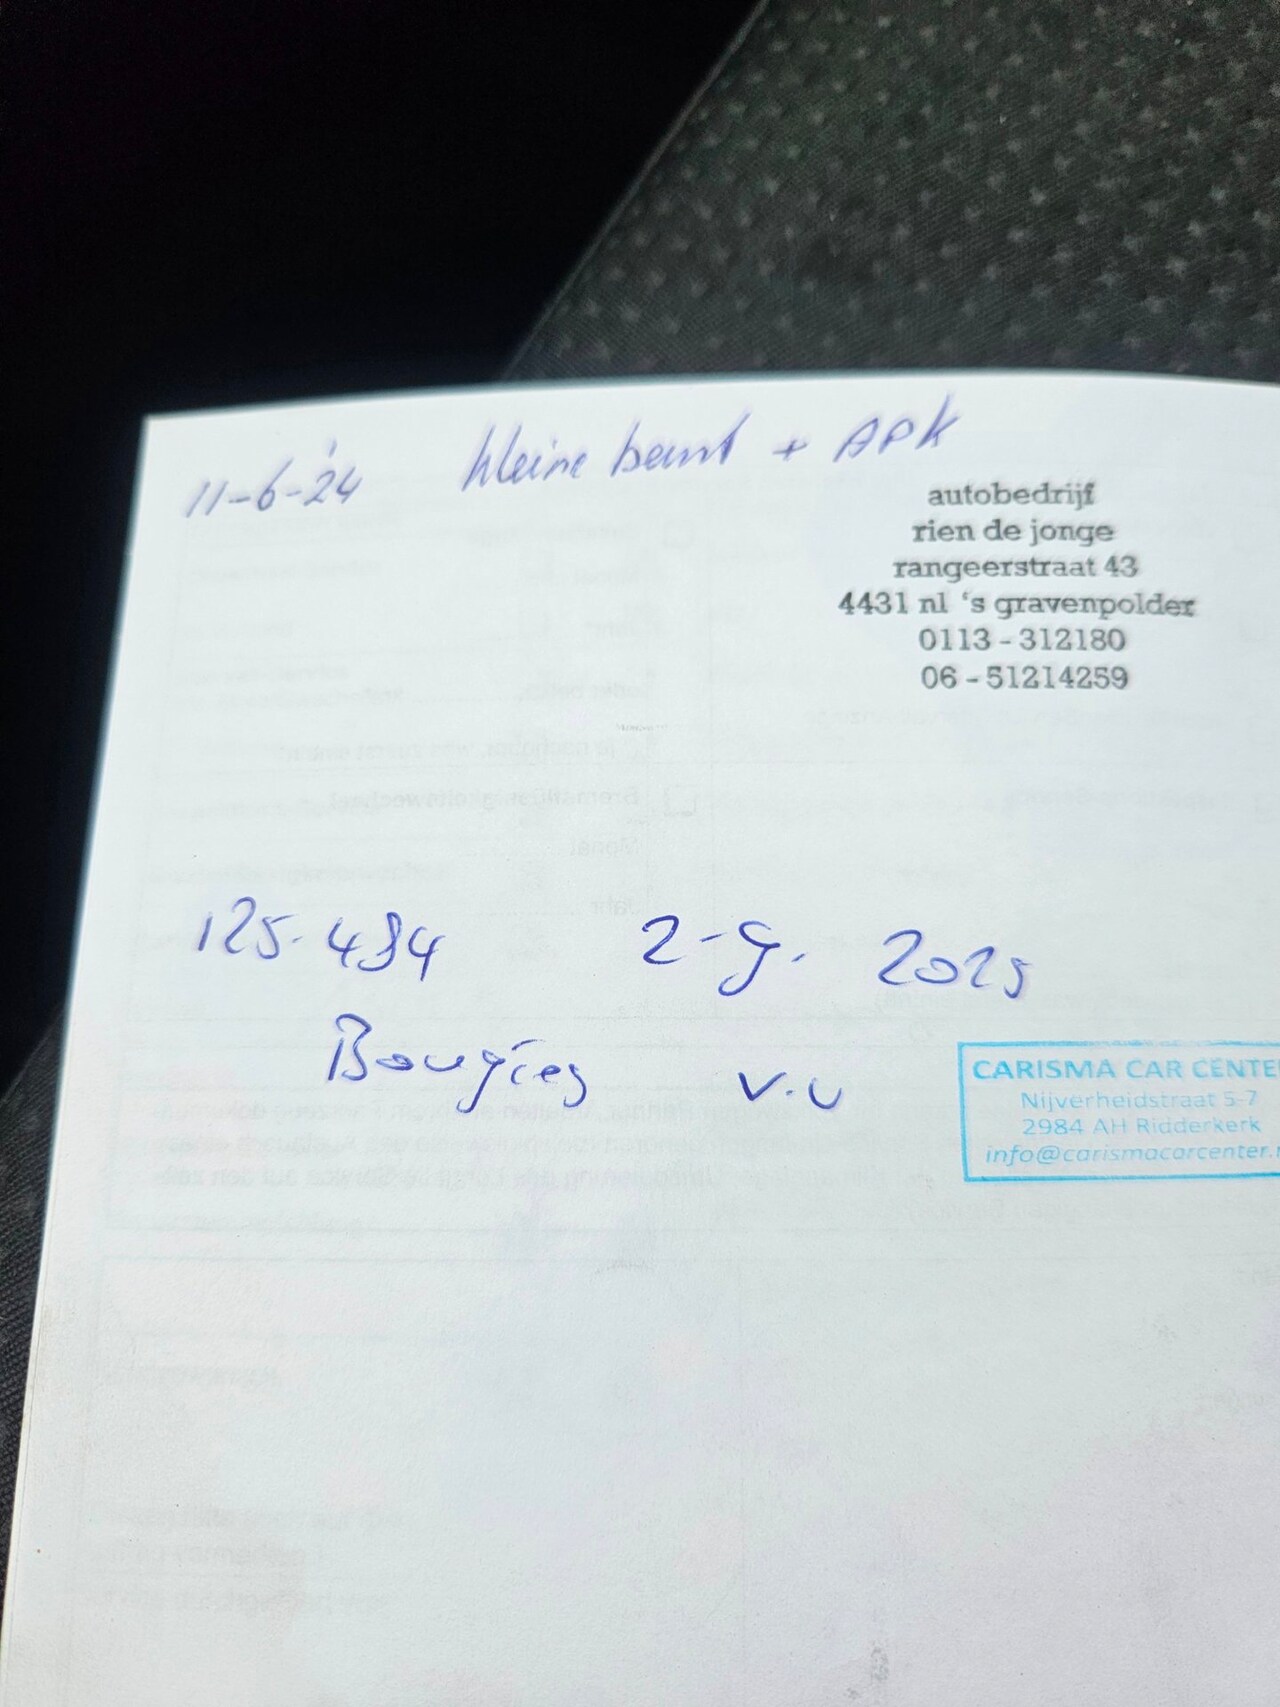 11-6-'24 kleine beurt + APK
autobedrijf
rien de jonge
rangeerstraat 43
4431 nl 's gravenpolder
0113 - 312180
06 - 51214259
125.494 2-9. 2025
Bougies v.v
CARISMA CAR CENTE
Nijverheidstraat 5-7
2984 AH Ridderkerk
info@carismacarcenter.n